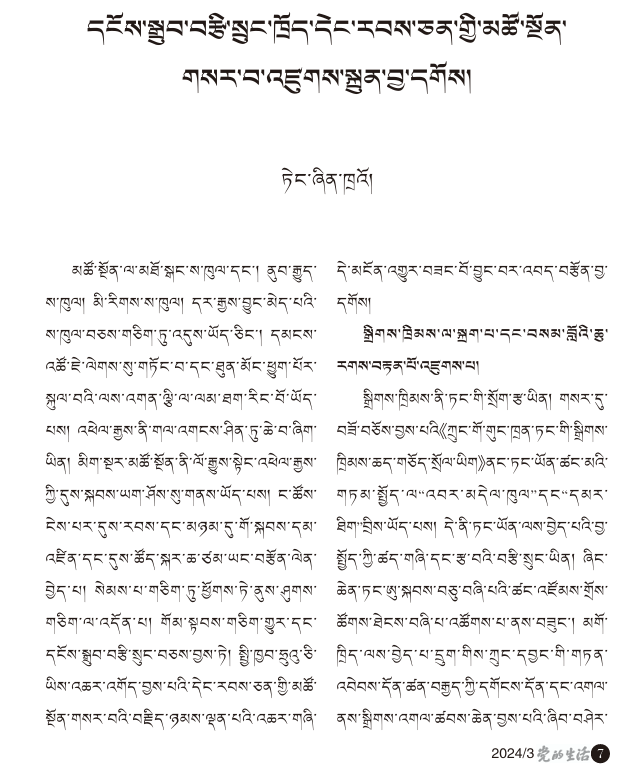 དངོས་སྒྲུབ་བརྩི་སྲུང་ཁྲོད་དེང་རབས་ཅན་གྱི་མཚོ་སྔོན་
གསར་བ་འཛུགས་སྐྲུན་བྱ་དགོས།
ཏེང་ཞིན་ཁྲའོ།
མཚོ་སྔོན་ལ་མཐོ་སྒང་ས་ཁུལ་དང་། ནུབ་རྒྱུད་
ས་ཁུལ། མི་རིགས་ས་ཁུལ། དར་རྒྱས་བྱུང་མེད་པའི་
ས་ཁུལ་བཅས་གཅིག་ཏུ་འདུས་ཡོད་ཅིང་། དམངས་
འཚོ་ཇེ་ལེགས་སུ་གཏོང་བ་དང་ཐུན་མོང་ཕྱུག་པོར་
སྐུལ་བའི་ལས་འགན་ལྕི་ལ་ལམ་ཐག་རིང་པོ་ཡོད་
པས། འཕེལ་རྒྱས་ནི་གལ་འགངས་ཤིན་ཏུ་ཆེ་བ་ཞིག་
ཡིན། མིག་སྔར་མཚོ་སྔོན་ནི་ལོ་རྒྱུས་སྟེང་འཕེལ་རྒྱས་
ཀྱི་དུས་སྐབས་ཡག་ཤོས་སུ་གནས་ཡོད་པས། ང་ཚོས་
ངེས་པར་དུས་རབས་དང་མཉམ་དུ་གོ་སྐབས་དམ་
འཛིན་དང་དུས་ཚོད་སྐར་ཆ་ཙམ་ཡང་བརྩོན་ལེན་
བྱེད་པ། སེམས་པ་གཅིག་ཏུ་ཕྱོགས་ཏེ་ནུས་ཤུགས་
གཅིག་ལ་འདོན་པ། གོམ་སྟབས་གཅིག་གྱུར་དང་
དངོས་སྒྲུབ་བརྩི་སྲུང་བཅས་བྱས་ཏེ། སྤྱི་ཁྱབ་ཧྲུའུ་ཅི་
ཡིས་འཆར་འགོད་བྱས་པའི་དེང་རབས་ཅན་གྱི་མཚོ་
སྔོན་གསར་བའི་བརྗིད་ཉམས་ལྡན་པའི་འཆར་གཞི་
དེ་མངོན་འགྱུར་བཟང་པོ་བྱུང་བར་འབད་བརྩོན་བྱ་
དགོས།
སྒྲིགས་ཁྲིམས་ལ་སྐྲག་པ་དང་བསམ་བློའི་ཆུ་
རགས་བརྟན་པོ་འཛུགས་པ།
སྒྲིགས་ཁྲིམས་ནི་ཏང་གི་སྲོག་རྩ་ཡིན། གསར་དུ་
བཟོ་བཅོས་བྱས་པའི《ཀྲུང་གོ་གུང་ཁྲན་ཏང་གི་སྒྲིགས་
ཁྲིམས་ཆད་གཅོད་སྲོལ་ཡིག》ནང་ཏང་ཡོན་ཚང་མའི་
གཏམ་སྤྱོད་ལ“འབར་མདེལ་ཁུལ”དང“དམར་
ཐིག”བྲིས་ཡོད་པས། དེ་ནི་ཏང་ཡོན་ལས་བྱེད་པའི་བྱ་
སྤྱོད་ཀྱི་ཚད་གཞི་དང་རྩ་བའི་བརྩི་སྲུང་ཡིན། ཞིང་
ཆེན་ཏང་ཨུ་སྐབས་བཅུ་བཞི་པའི་ཚང་འཛོམས་གྲོས་
ཚོགས་ཐེངས་བཞི་པ་འཚོགས་པ་ནས་བཟུང་། མགོ་
ཁྲིད་ལས་བྱེད་པ་དྲུག་གིས་ཀྲུང་དབྱང་གི་གཏན་
འབེབས་དོན་ཚན་བརྒྱད་ཀྱི་དགོངས་དོན་དང་འགལ་
ནས་སྒྲིགས་འགལ་ཚབས་ཆེན་བྱས་པའི་ཞིབ་བཤེར་
2024/3 党的生活 7